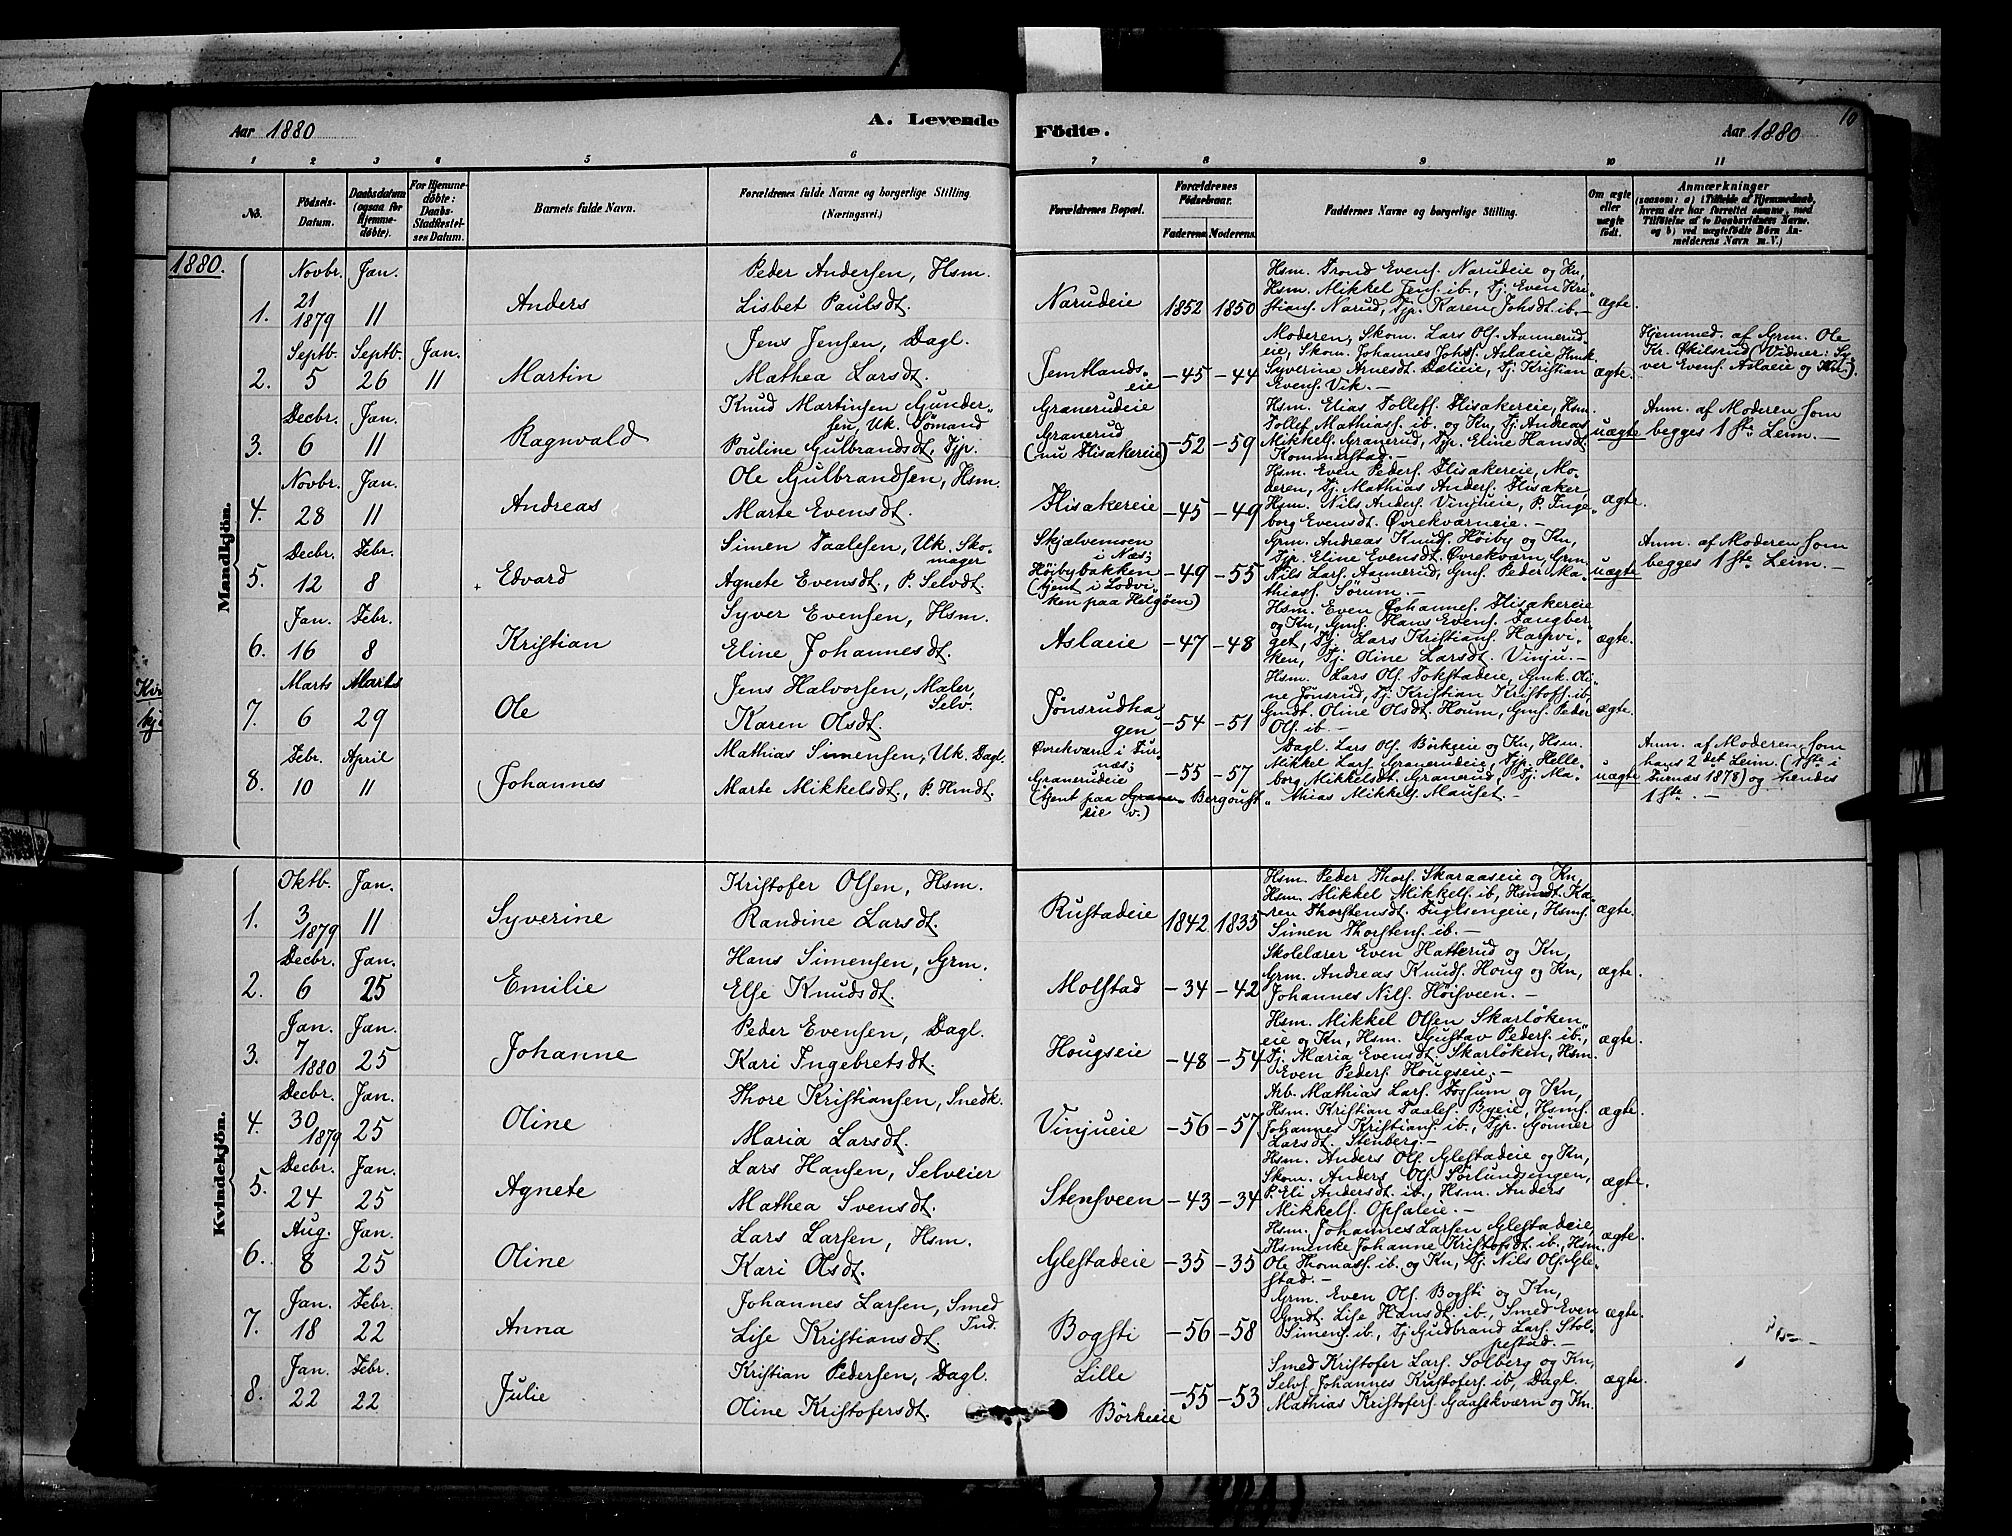 10
Aar 1880
A. Levende
Födte.
Aar 1880
1 2 3 4 5 6 7 8 9 10 11
No.
Födsels-Datum.
Daabsdatum (ogsaa for Hjemmedöbte).
For Hjemmedöbte: Daabs-Stadfestelses Datum.
Barnets fulde Navn.
Forældrenes fulde Navne og borgerlige Stilling. (Næringsvei.)
Forældrenes Bopæl.
Forældrenes Födselsaar.
Faderens. Moderens.
Faddernes Navne og borgerlige Stilling.
Om ægte eller uægte födt.
Anmærkninger
(saasom: a) i Tilfælde af Hjemmedaab, hvem der har forrettet samme, med Tilföielse af to Daabsvidners Navne, og b) ved uægtefödte Börn Anmelderens Navn m. V.)
1880.
Mandkjön.
1. Novbr. 21 1879 Jan. 11 Anders
Peder Andersen, Hsm.
Lisbet Paulsdt.
Narudeie 1852 1850
Hsm. Trond Evens. Narudeie og Kn,
Hsm. Mikkel Jens. ib., Tj. Even Kri-
stians. Narud, Tjp. Karen Johsdt ib.—
ægte.
2. Septb. 5 Septb. 26 Jan. 11 Martin
Jens Jensen, Dagl.
Mathea Larsdt.
Jemtlands-
eie
—45 —44
Moderen, Skom. Lars Ols. Aannerud-
eie, Skom. Johannes Johs. Aslaeie, Hmk.
Syverine Arnesdt. Dælieie, Tj. Kristian
Evens. Vik.—
ægte.
Hjemmed. af Grm. Ole
Kr. Økilsrud (Vidner: Sy-
ver Evens. Aslaeie og Hu).
3. Decbr. 6 Jan. 11 Ragnvald
Knud Martinsen Gunder-
sen, Uk. Sømand
Pouline Gulbrandsdt, Tjp.
Granerudeie
Granerud
(nu Flisakereie)
—52 —59
Hsm. Elias Tollefs. Flisakereie, Hsm.
Tollef Mathiass. ib. og Kn, Tj. Andreas
Mikkels. Granerud, Tjp. Eline Hansdt.
Kommerstad.—
uægte
Anm. af Moderen som
begges 1ste Leim.—
4. Novbr. 28 Jan. 11 Andreas
Ole Gulbrandsen, Hsm.
Marte Evensdt.
Flisakereie —45 —49
Hsm. Even Peders. Flisakereie, Mo-
deren, Tj. Mathias Anders. Flisaker,
Hsm. Nils Anders. Vinjueie, P. Inge-
borg Evensdt. Øvrekværneie.—
ægte.
5. Decbr. 12 Febr. 8 Edvard
Simen Taalesen, Uk. Sko-
mager
Agnete Evensdt., P. Selvdt.
Skjælvemoen
i Næs;
Høibybakken
(tjent i Lodvi-
ken paa Helgøen)
—49 —55
Grm. Andreas Knuds. Høiby og Kn,
Tjp. Eline Evensdt. Øvrekværn, Grm.
Nils Lars. Aannerud, Gms. Peder Ma-
thiass. Sørum.—
uægte
Anm. af Moderen som
begges 1ste Leim.—
6. Jan. 16 Febr. 8 Kristian
Syver Evensen, Hsm.
Eline Johannesdt.
Aslaeie —47 —48
Hsm. Even Johannes. Flisakereie
og Kn, Gms. Hans Evens. Fangber-
get, Tj. Lars Kristians. Harsvi-
ken, Tj. Oline Larsdt. Vinju.—
ægte.
7. Marts 6 Marts 29 Ole
Jens Halvorsen, Maler,
Selv.
Karen Olsdt.
Jønsrudha-
gen
—54 —51
Hsm. Lars Ols. Tokstadeie, Gmk. Oli-
ne Jønsrud, Tj. Kristian Kristoffs. ib.,
Gmdt. Oline Olsdt. Houm, Gms. Peder
Ols. ib.—
ægte.
8. Febr. 10 April 11 Johannes
Mathias Simensen, Uk. Dagl.
Marte Mikkelsdt., P. Hmdt.
Øvrekværn i Fur-
næs;
Granerudeie
(tjent paa Bergoust-
eie v.)
—55 —57
Dagl. Lars Ols. Børkeeie og Kn, Hsm.
Mikkel Lars. Granerudeie, Tjp. Helle-
borg Mikkelsdt. Granerud, Tj. Ma-
thias Mikkels. Mauset.—
uægte
Anm. af Moderen som
hans 2det Leim. (1ste i
Furnæs 1878) og hendes
1ste.—
Kvindekjön.
1. Oktb. 3 1879 Jan. 11 Syverine
Kristofer Olsen, Hsm.
Randine Larsdt.
Rustadeie 1842 1835
Hsm. Peder Thors. Skaraaseie og Kn,
Hsm. Mikkel Mikkels. ib, Hsmdt. Ka-
ren Thorstensdt. Fuglsengeie, Hsms.
Simen Thorstens. ib.—
ægte.
2. Decbr. 6 Jan. 25 Emilie
Hans Simensen, Grm.
Else Knudsdt.
Molstad —34 —42
Skolelærer Even Hatterud og Kn,
Grm. Andreas Knuds. Houg og Kn,
Johannes Nils. Høisveen.—
ægte.
3. Jan. 7 1880 Jan. 25 Johanne
Peder Evensen, Dagl.
Kari Ingebretsdt.
Hougseie —48 —54
Hsm. Mikkel Olsen Skarløken-
eie og Kn, Hsm. Gustav Peders. ib.,
Tj. Maria Evensdt. Skarløken, Hsm.
Even Peders. Hougseie.—
ægte.
4. Decbr. 30 1879 Jan. 25 Oline
Thore Kristiansen, Snedk.
Maria Larsdt.
Vinjueie —56 —57
Arb. Mathias Lars. Fossum og Kn,
Hsm. Kristian Taales. Byeie, Hsms.
Johannes Kristians. ib., Tjp. Gønner
Larsdt. Stenberg—
ægte.
5. Decbr. 24 Jan. 25 Agnete
Lars Hansen, Selveier
Mathea Svensdt.
Stensveen —43 —34
Hsm. Anders Ols. Glestadeie og Kn,
Skom. Anders Ols. Sørlundsengen,
P. Eli Andersdt. ib., Hsm. Anders
Mikkels. Opsaleie.—
ægte.
6. Aug. 8 Jan. 25 Oline
Lars Larsen, Hsm.
Kari Olsdt.
Glestadeie —35 —35
Hsm. Johannes Larsen Glestadeie,
Hsmenke Johanne Kristofsdt. ib., Hsm.
Ole Thomass. ib. og Kn, Tj. Nils Ols. Gle-
stad.—
ægte.
7. Jan. 18 Febr. 22 Anna
Johannes Larsen, Smed
Ind.
Lise Kristiansdt
Bogsti —56 —58
Grm. Even Ols. Bogsti og Kn,
Gmdt. Lise Hansdt. ib., Smed Even
Simens. ib., Tj. Gudbrand Lars. Stol-
pestad.—
ægte.
8. Jan. 22 Febr. 22 Julie
Kristian Pedersen, Dagl.
Oline Kristofersdt.
Lille
Börkeeie
—55 —53
Smed Kristofer Lars. Solberg og Kn,
Selvs. Johannes Kristofers. ib, Dagl.
Mathias Kristofers. Gaasekværn og Kn.
ægte.